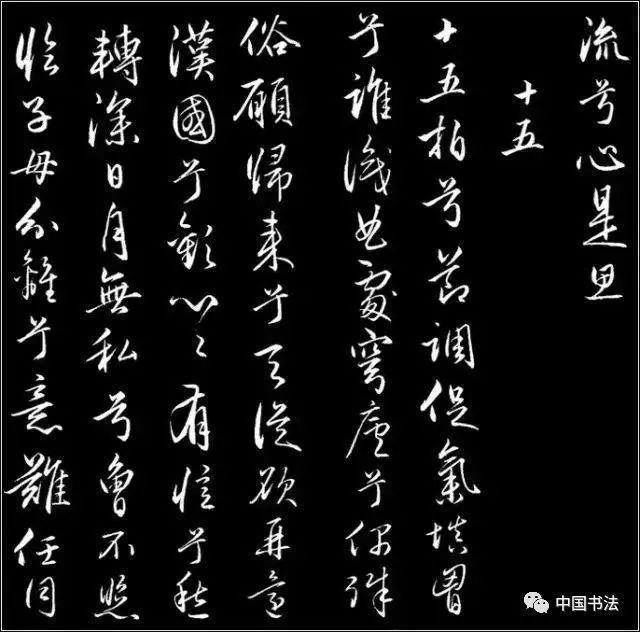 流兮心是思
十五
十五拍兮節調促氣填胸
兮誰識曲處穹廬兮偶殊
俗願歸来兮天從欲再還
漢國兮歡心々有憶兮愁
轉深日月無私兮曾不照
臨子母分離兮意難任同
中国书法